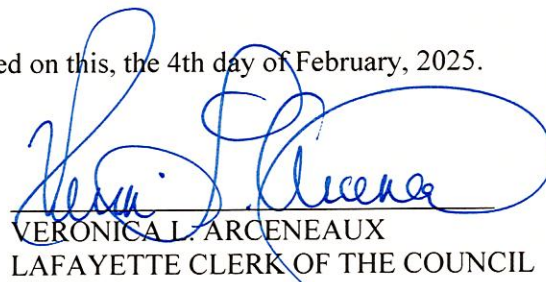 ed on this, the 4th day of February, 2025.
VERONICA L. ARCENEAUX
LAFAYETTE CLERK OF THE COUNCIL